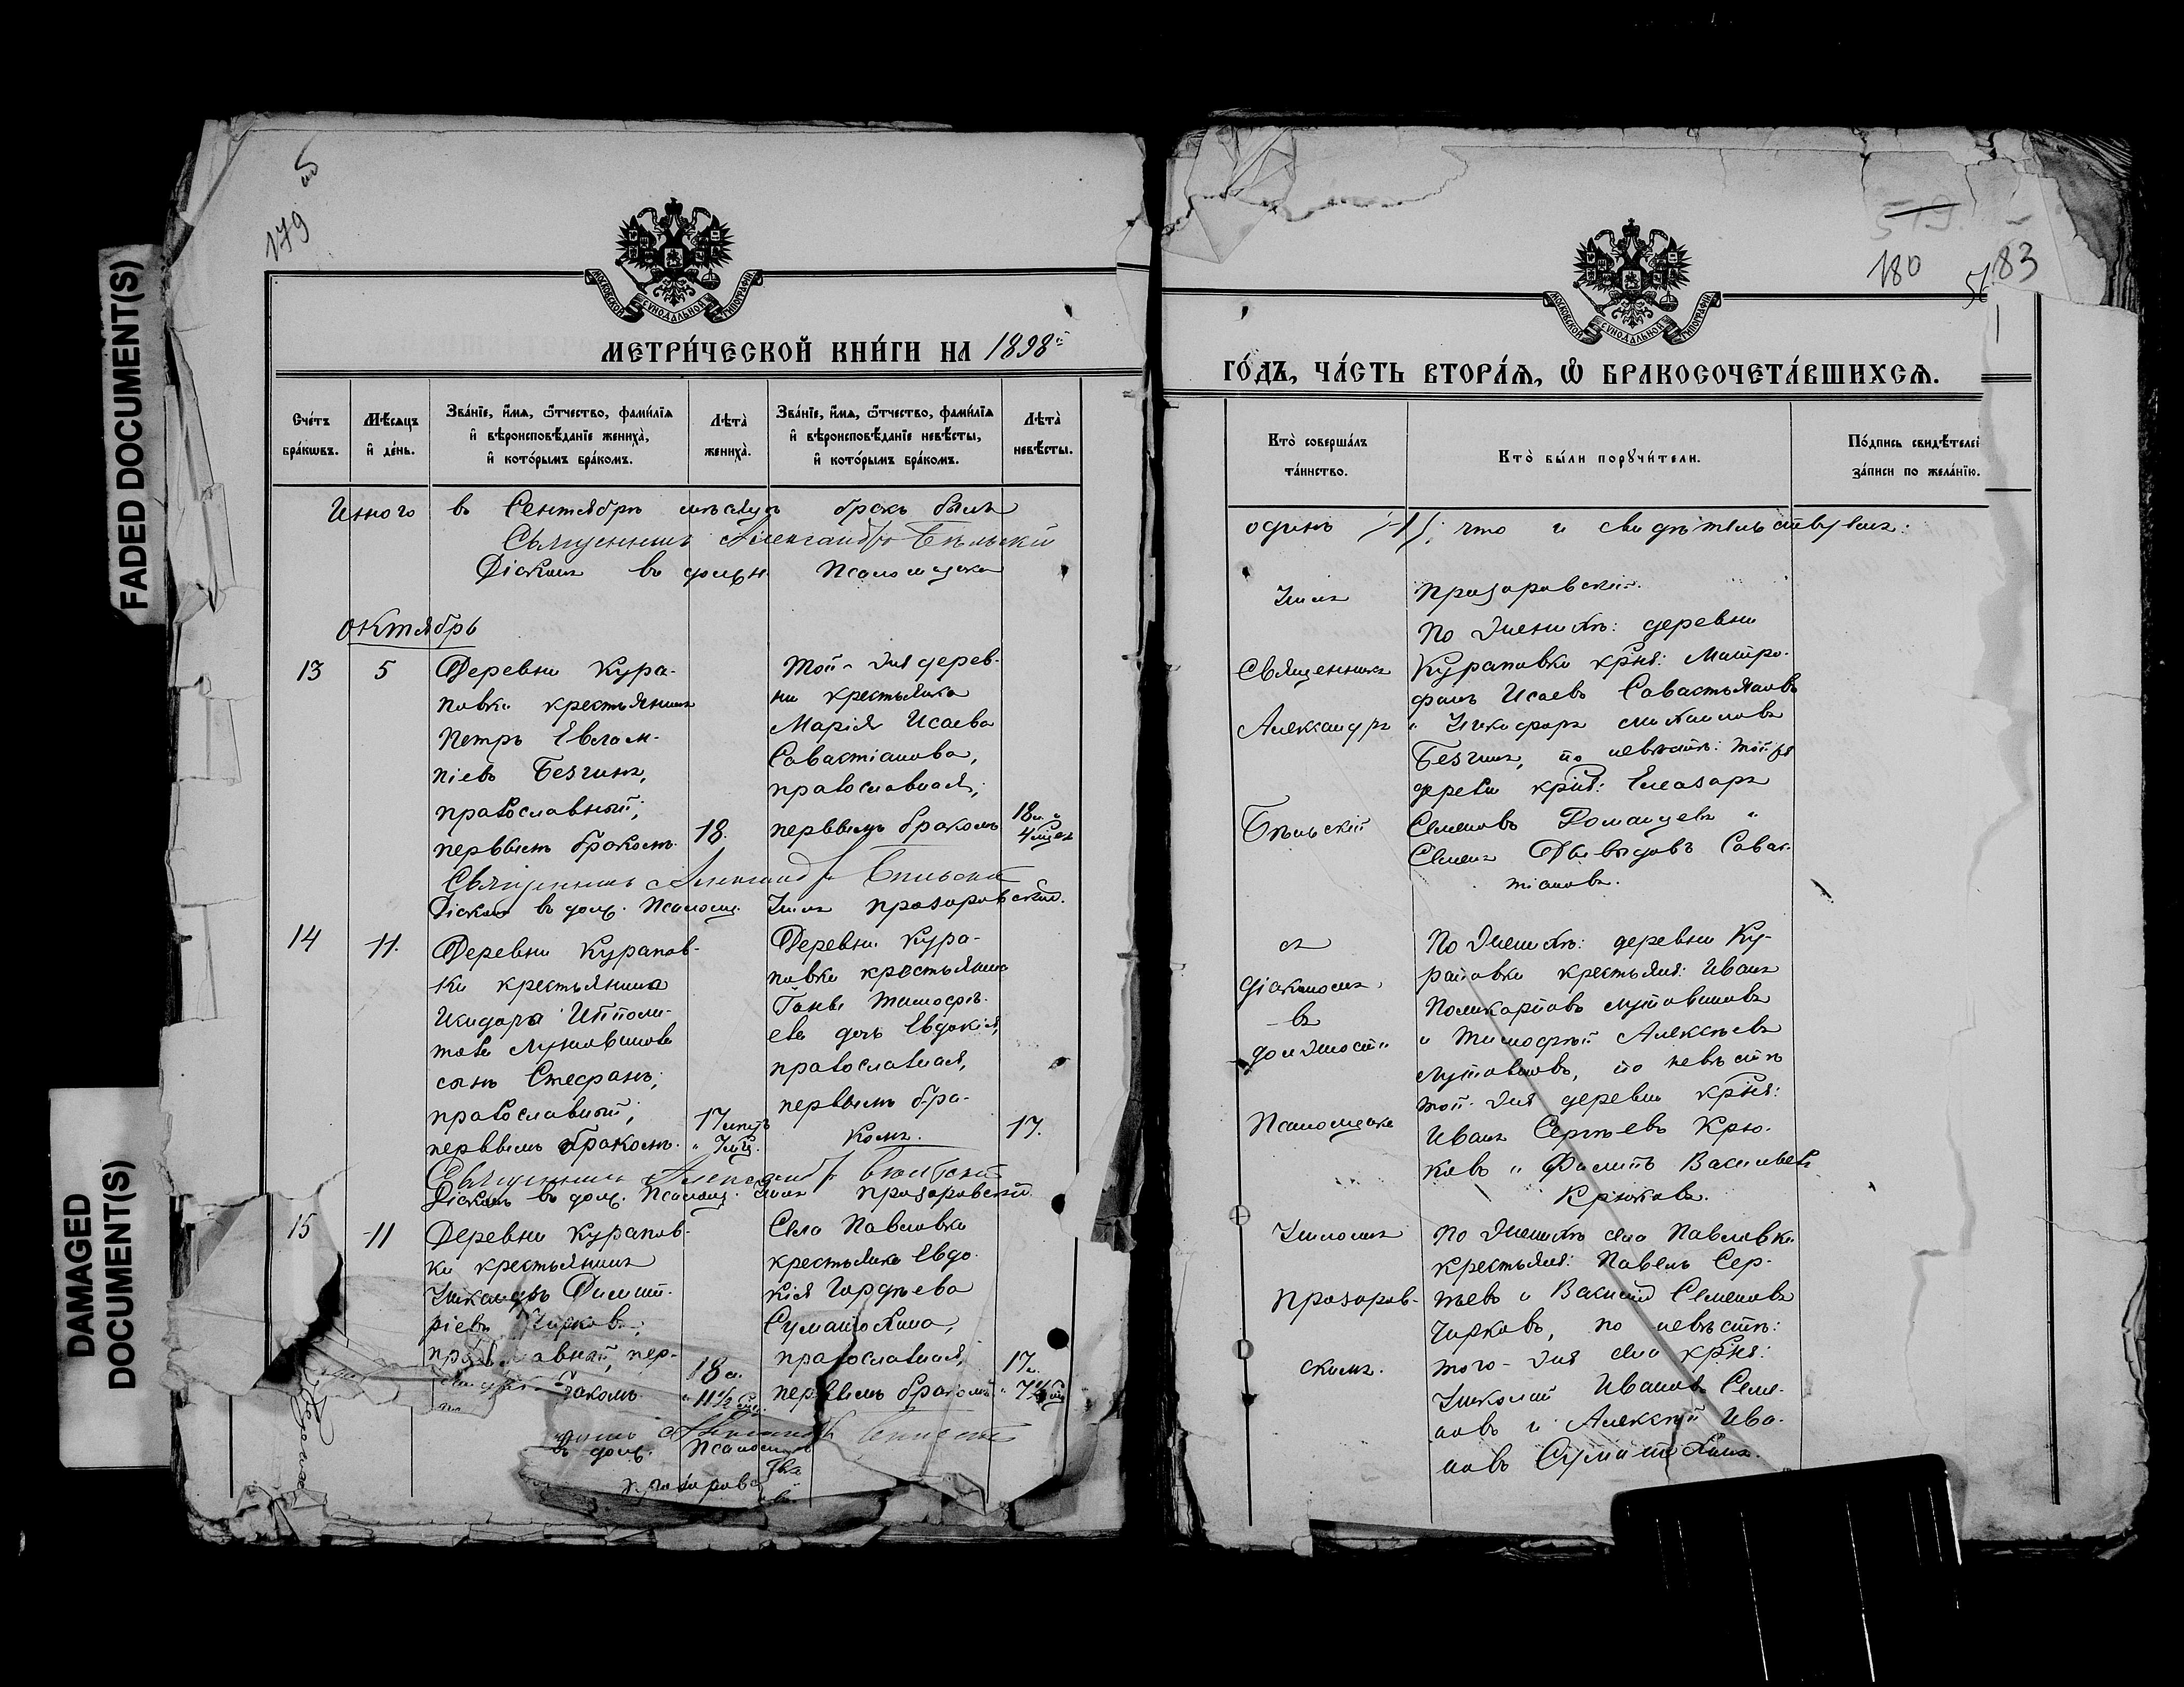 FADED DOCUMENT(S)
DAMAGED
DOCUMENT(S)
179
МОСКОВСКОЙ СѴНОДАЛЬНОЙ ТИПОГРАФІИ
МЕТРИ́ЧЕСКОЙ КНИ́ГИ НА 1898й
Сче́тъ бра́кѡвъ.
Мѣ́сяцъ и҆ де́нь.
Зва́нїе, и҆́мя, ѻ҆́тчество, фами́лїя
и҆ вѣроисповѣ́данїе жениха̀,
и҆ кото́рымъ бра́комъ.
Лѣта̀ жениха̀.
Зва́нїе, и҆́мя, ѻ҆́тчество, фами́лїя
и҆ вѣроисповѣ́данїе невѣ́сты,
и҆ кото́рымъ бра́комъ.
Лѣта̀ невѣ́сты.
въ Сентябрѣ мѣсяцѣ бракъ былъ
Священникъ Александръ Бѣльскій
Діаконъ въ должн. Псаломщика
Октябрь
13
5
Деревни Кура-
повки крестьянинъ
Петръ Евлам-
піевъ Безгинъ,
православный;
первымъ бракомъ.
18.
Той-же дерев-
ни крестьянка
Марія Исаева
Савастіанова,
православная;
первымъ бракомъ
18 л. и
4 мѣс.
Священникъ Александръ Бѣльскій
Діаконъ въ долж. Псаломщ. Прозоровскій.
14
11.
Деревни Курапов-
ки крестьянина
Ипполи-
това Лутовинова
сынъ Стефанъ;
православный;
первымъ бракомъ.
17 лѣтъ
Деревни Кура-
повки крестьянина
Тимофѣ-
ева дочь Евдокія,
православная,
первымъ бра-
комъ.
17.
Священникъ Александръ Бѣльскій
Діаконъ въ долж. Псаломщ. Прозоровскій
15
11
Деревни Курапов-
ки крестьянинъ
Димит-
ріевъ Чирковъ,
православный, пер-
бракомъ
18 л.
11½ мѣс.
Села Павловки
крестьянка Евдо-
кія Гордѣева
Суматохина,
православная,
первымъ бракомъ
17 л.
въ долж. Псаломщика
180
83
МОСКОВСКОЙ СѴНОДАЛЬНОЙ ТИПОГРАФІИ
ГО́ДЪ, ЧА́СТЬ ВТОРА́Я, Ѡ҆ БРАКОСОЧЕТА́ВШИХСЯ.
Кто̀ соверша́лъ
та́инство.
Кто̀ бы́ли порꙋчи́тели.
По́дпись свидѣ́телей
за́писи по жела́нїю.
одинъ /1/; что и свидѣтельствуемъ:
Прозоровскій.
Священникъ
Александръ
Бѣльскій
По женихѣ: деревни
Кураповки крѣя: Митро-
фанъ Исаевъ Савастьяновъ
и Никифоръ Михаиловъ
Безгинъ, по невѣстѣ: той-же
деревни крѣя: Елеазаръ
Семеновъ Романцевъ и
Семенъ Давыдовъ Савас-
тіановъ.
съ
діакономъ
въ
должности
Псаломщика
По женихѣ: деревни Ку-
раповки крестьяня: Иванъ
Поликарповъ Лутовиновъ
и Тимофей Алексѣевъ
Лутовиновъ, по невѣстѣ
той-же деревни крѣя:
Иванъ Сергѣевъ Крю-
ковъ и Филиппъ Васильевъ
Крюковъ.
Прозоров-
скимъ.
По женихѣ села Павловки
крестьяня: Павелъ Сер-
гѣевъ и Василій Семеновъ
Чирковъ, по невѣстѣ:
того-же села крѣя:
Николай Ивановъ Семе-
новъ и Алексѣй Ива-
новъ Суматохинъ.